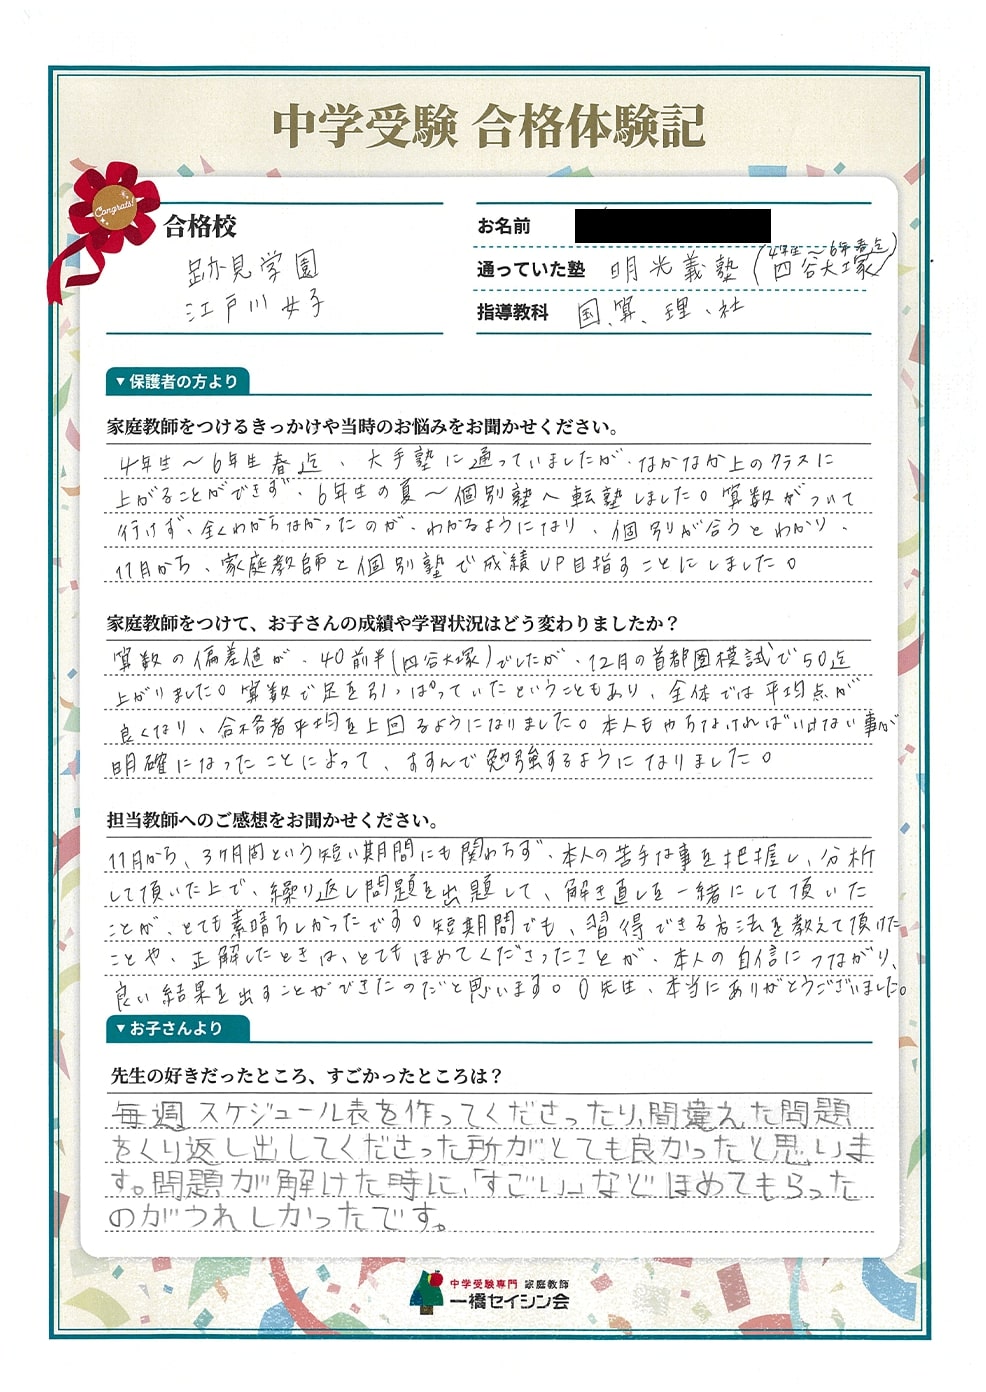 中学受験 合格体験記
Congrats!
合格校
跡見学園
江戸川女子
お名前
通っていた塾 明光義塾 (4年生〜6年春迄 四谷大塚)
指導教科 国、算、理、社
▼保護者の方より
家庭教師をつけるきっかけや当時のお悩みをお聞かせください。
4年生〜6年生春迄、大手塾に通っていましたが、なかなか上のクラスに
上がることができず、6年生の夏〜個別塾へ転塾しました。算数がついて
行けず、全くわからなかったのが、わかるようになり、個別が合うとわかり、
11月から、家庭教師と個別塾で成績UP目指すことにしました。
家庭教師をつけて、お子さんの成績や学習状況はどう変わりましたか？
算数の偏差値が、40前半(四谷大塚)でしたが、12月の首都圏模試で50迄
上がりました。算数で足を引っぱっていたということもあり、全体では平均点が
良くなり、合格者平均を上回るようになりました。本人もやらなければいけない事が
明確になったことによって、すすんで勉強するようになりました。
担当教師へのご感想をお聞かせください。
11月から、3ヶ月間という短い期間にも関わらず、本人の苦手な事を把握し、分析
して頂いた上で、繰り返し問題を出題して、解き直しを一緒にして頂いた
ことが、とても素晴らしかったです。短期間でも、習得できる方法を教えて頂けた
ことや、正解したときは、とてもほめてくださったことが、本人の自信につながり、
良い結果を出すことができたのだと思います。O先生、本当にありがとうございました。
▼お子さんより
先生の好きだったところ、すごかったところは？
毎週スケジュール表を作ってくださったり、間違えた問題
をくり返し出してくださった所がとても良かったと思いま
す。問題が解けた時に、「すごい」などほめてもらった
のがうれしかったです。
中学受験専門 家庭教師
一橋セイシン会